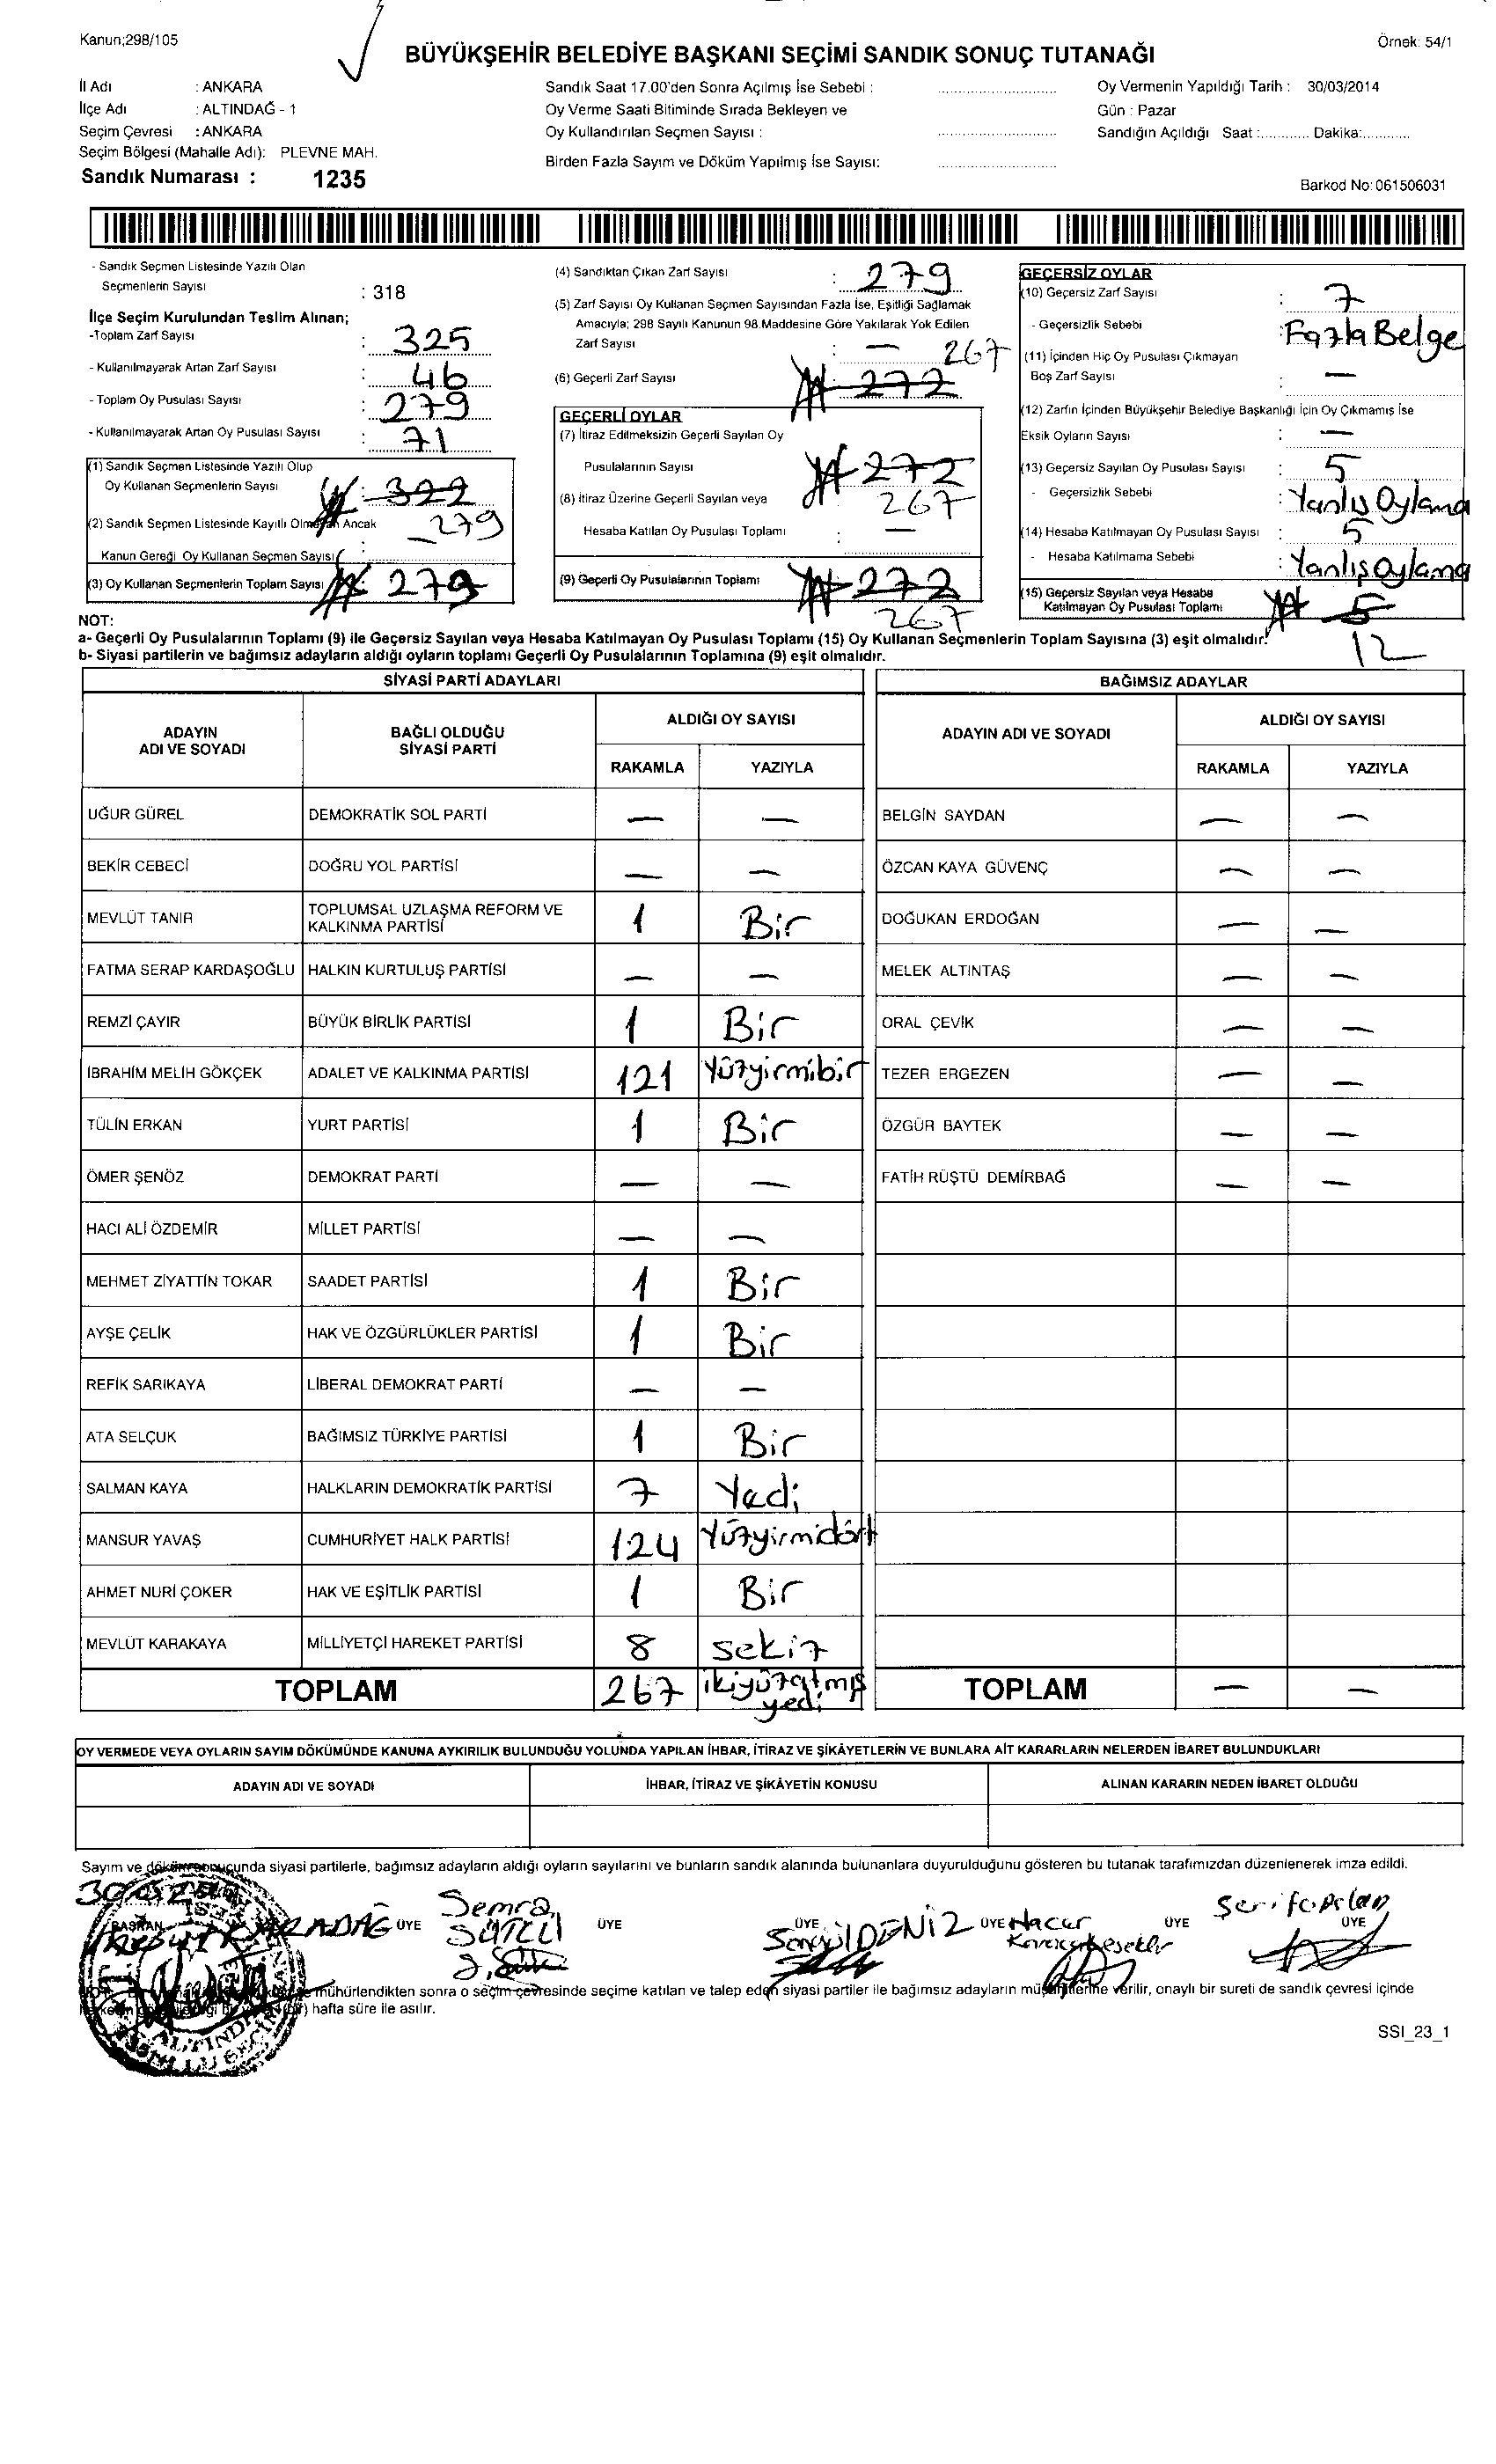 Kanun;298/105
Örnek: 54/1
BÜYÜKŞEHİR BELEDİYE BAŞKANI SEÇİMİ SANDIK SONUÇ TUTANAĞI
İl Adı : ANKARA
İlçe Adı : ALTINDAĞ - 1
Seçim Çevresi : ANKARA
Seçim Bölgesi (Mahalle Adı): PLEVNE MAH.
Sandık Numarası : 1235
Sandık Saat 17.00'den Sonra Açılmış İse Sebebi :
Oy Verme Saati Bitiminde Sırada Bekleyen ve
Oy Kullandırılan Seçmen Sayısı :
Birden Fazla Sayım ve Döküm Yapılmış İse Sayısı:
Oy Vermenin Yapıldığı Tarih : 30/03/2014
Gün : Pazar
Sandığın Açıldığı Saat :............ Dakika:............
Barkod No: 061506031
- Sandık Seçmen Listesinde Yazılı Olan
Seçmenlerin Sayısı : 318
İlçe Seçim Kurulundan Teslim Alınan;
-Toplam Zarf Sayısı : 325
- Kullanılmayarak Artan Zarf Sayısı : 46
- Toplam Oy Pusulası Sayısı : 279
- Kullanılmayarak Artan Oy Pusulası Sayısı : 71
(1) Sandık Seçmen Listesinde Yazılı Olup
Oy Kullanan Seçmenlerin Sayısı : 322
279
(2) Sandık Seçmen Listesinde Kayıtlı Olmayan Ancak
Kanun Gereği Oy Kullanan Seçmen Sayısı
(3) Oy Kullanan Seçmenlerin Toplam Sayısı : 279
(4) Sandıktan Çıkan Zarf Sayısı : 279
(5) Zarf Sayısı Oy Kullanan Seçmen Sayısından Fazla İse, Eşitliği Sağlamak
Amacıyla; 298 Sayılı Kanunun 98.Maddesine Göre Yakılarak Yok Edilen
Zarf Sayısı : —
267
(6) Geçerli Zarf Sayısı 272
GEÇERLİ OYLAR
(7) İtiraz Edilmeksizin Geçerli Sayılan Oy
Pusulalarının Sayısı 272
267
(8) İtiraz Üzerine Geçerli Sayılan veya
Hesaba Katılan Oy Pusulası Toplamı : —
(9) Geçerli Oy Pusulalarının Toplamı 272
267
GEÇERSİZ OYLAR
(10) Geçersiz Zarf Sayısı : 7
- Geçersizlik Sebebi : Fazla Belge
(11) İçinden Hiç Oy Pusulası Çıkmayan
Boş Zarf Sayısı : —
(12) Zarfın İçinden Büyükşehir Belediye Başkanlığı İçin Oy Çıkmamış İse
Eksik Oyların Sayısı : —
(13) Geçersiz Sayılan Oy Pusulası Sayısı : 5
- Geçersizlik Sebebi : Yanlış Oylama
(14) Hesaba Katılmayan Oy Pusulası Sayısı : 5
- Hesaba Katılmama Sebebi : Yanlış Oylama
(15) Geçersiz Sayılan veya Hesaba
Katılmayan Oy Pusulası Toplamı 5
12
NOT:
a- Geçerli Oy Pusulalarının Toplamı (9) ile Geçersiz Sayılan veya Hesaba Katılmayan Oy Pusulası Toplamı (15) Oy Kullanan Seçmenlerin Toplam Sayısına (3) eşit olmalıdır.
b- Siyasi partilerin ve bağımsız adayların aldığı oyların toplamı Geçerli Oy Pusulalarının Toplamına (9) eşit olmalıdır.
SİYASİ PARTİ ADAYLARI
ADAYIN ADI VE SOYADI BAĞLI OLDUĞU SİYASİ PARTİ ALDIĞI OY SAYISI
RAKAMLA YAZIYLA
UĞUR GÜREL DEMOKRATİK SOL PARTİ — —
BEKİR CEBECİ DOĞRU YOL PARTİSİ — —
MEVLÜT TANIR TOPLUMSAL UZLAŞMA REFORM VE KALKINMA PARTİSİ 1 Bir
FATMA SERAP KARDAŞOĞLU HALKIN KURTULUŞ PARTİSİ — —
REMZİ ÇAYIR BÜYÜK BİRLİK PARTİSİ 1 Bir
İBRAHİM MELİH GÖKÇEK ADALET VE KALKINMA PARTİSİ 121 Yüzyirmibir
TÜLİN ERKAN YURT PARTİSİ 1 Bir
ÖMER ŞENÖZ DEMOKRAT PARTİ — —
HACI ALİ ÖZDEMİR MİLLET PARTİSİ — —
MEHMET ZİYATTİN TOKAR SAADET PARTİSİ 1 Bir
AYŞE ÇELİK HAK VE ÖZGÜRLÜKLER PARTİSİ 1 Bir
REFİK SARIKAYA LİBERAL DEMOKRAT PARTİ — —
ATA SELÇUK BAĞIMSIZ TÜRKİYE PARTİSİ 1 Bir
SALMAN KAYA HALKLARIN DEMOKRATİK PARTİSİ 7 Yedi
MANSUR YAVAŞ CUMHURİYET HALK PARTİSİ 124 Yüzyirmidört
AHMET NURİ ÇOKER HAK VE EŞİTLİK PARTİSİ 1 Bir
MEVLÜT KARAKAYA MİLLİYETÇİ HAREKET PARTİSİ 8 sekiz
TOPLAM 267 ikiyüzatmış yedi
BAĞIMSIZ ADAYLAR
ADAYIN ADI VE SOYADI ALDIĞI OY SAYISI
RAKAMLA YAZIYLA
BELGİN SAYDAN — —
ÖZCAN KAYA GÜVENÇ — —
DOĞUKAN ERDOĞAN — —
MELEK ALTINTAŞ — —
ORAL ÇEVİK — —
TEZER ERGEZEN — —
ÖZGÜR BAYTEK — —
FATİH RÜŞTÜ DEMİRBAĞ — —
TOPLAM — —
OY VERMEDE VEYA OYLARIN SAYIM DÖKÜMÜNDE KANUNA AYKIRILIK BULUNDUĞU YOLUNDA YAPILAN İHBAR, İTİRAZ VE ŞİKÂYETLERİN VE BUNLARA AİT KARARLARIN NELERDEN İBARET BULUNDUKLARI
ADAYIN ADI VE SOYADI İHBAR, İTİRAZ VE ŞİKÂYETİN KONUSU ALINAN KARARIN NEDEN İBARET OLDUĞU
Sayım ve döküm sonucunda siyasi partilerle, bağımsız adayların aldığı oyların sayılarını ve bunların sandık alanında bulunanlara duyurulduğunu gösteren bu tutanak tarafımızdan düzenlenerek imza edildi.
BAŞKAN ÜYE ÜYE ÜYE ÜYE ÜYE ÜYE
Semra SÜTCÜ
Songül DENİZ
Hacer
mühürlendikten sonra o seçim çevresinde seçime katılan ve talep eden siyasi partiler ile bağımsız adayların müşahitlerine verilir, onaylı bir sureti de sandık çevresi içinde
hafta süre ile asılır.
SSI_23_1